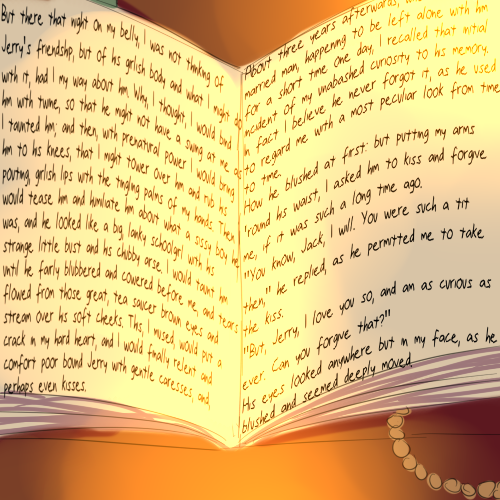 But there that night on my belly, I was not thinking of
Jerry's friendship, but of his girlish body and what I might do
with it, had I my way about him. Why, I thought, I would bind
him with twine, so that he might not have a swing at me as
I taunted him; and then, with prenatural power I would bring
him to his knees, that I might tower over him and rub his
pouting, girlish lips with the tingling palms of my hands. Then
would tease him and humiliate him about what a sissy boy he
was, and he looked like a big, lanky schoolgirl with his
strange little bust and his chubby arse. I would taunt him
until he fairly blubbered and cowered before me, and tears
flowed from those great, tea saucer brown eyes and
stream over his soft cheeks. This, I mused, would put a
crack in my hard heart, and I would finally relent and
comfort poor bound Jerry with gentle caresses, and
perhaps even kisses.
About three years afterwards,
married man, happening to be left alone with him
for a short time one day, I recalled that initial
incident of my unabashed curiosity to his memory.
fact I believe he never forgot it, as he used
to regard me with a most peculiar look from time
to time.
How he blushed at first: but putting my arms
'round his waist, I asked him to kiss and forgive
me, if it was such a long time ago.
"You know, Jack, I will. You were such a tit
then," he replied, as he permitted me to take
the kiss.
"But, Jerry, I love you so, and am as curious as
ever. Can you forgive that?"
His eyes looked anywhere but in my face, as he
blushed and seemed deeply moved.